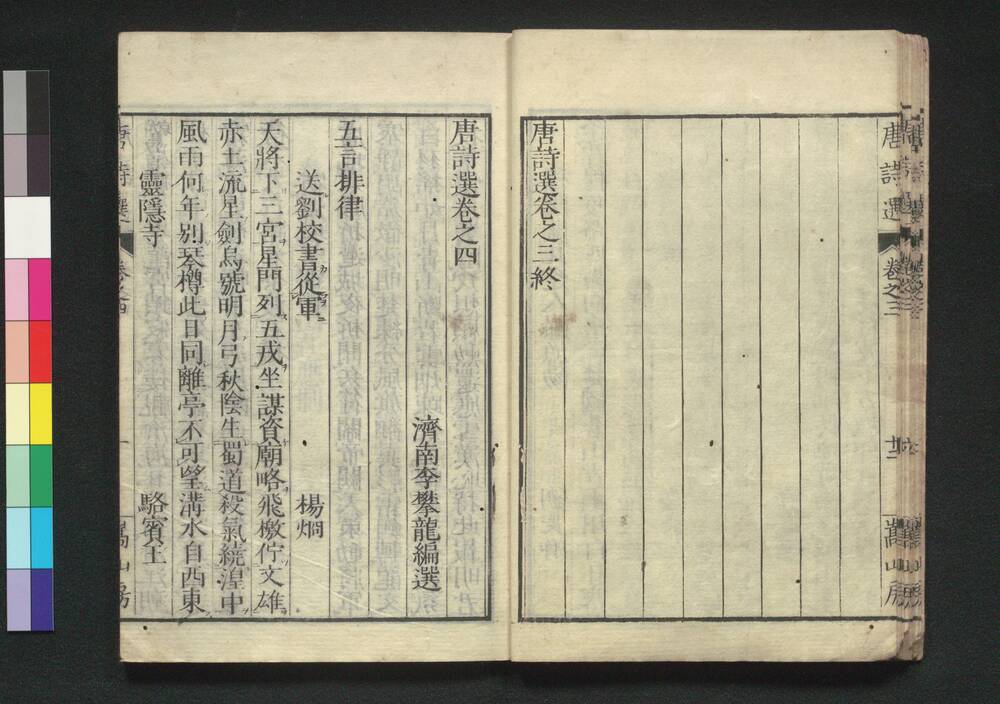 唐詩選
卷之三
嵩山房
唐詩選卷之三終
唐詩選卷之四
濟南李攀龍編選
五言排律
送劉校書從軍 楊烱
天將下三宮星門列五戎坐謀資廟略飛檄佇文雄
赤土流星劍烏號明月弓秋陰生蜀道殺氣繞湟中
風雨何年別琴樽此日同離亭不可望溝水自西東
靈隱寺 駱賓王
唐詩選
卷之四
一
嵩山房